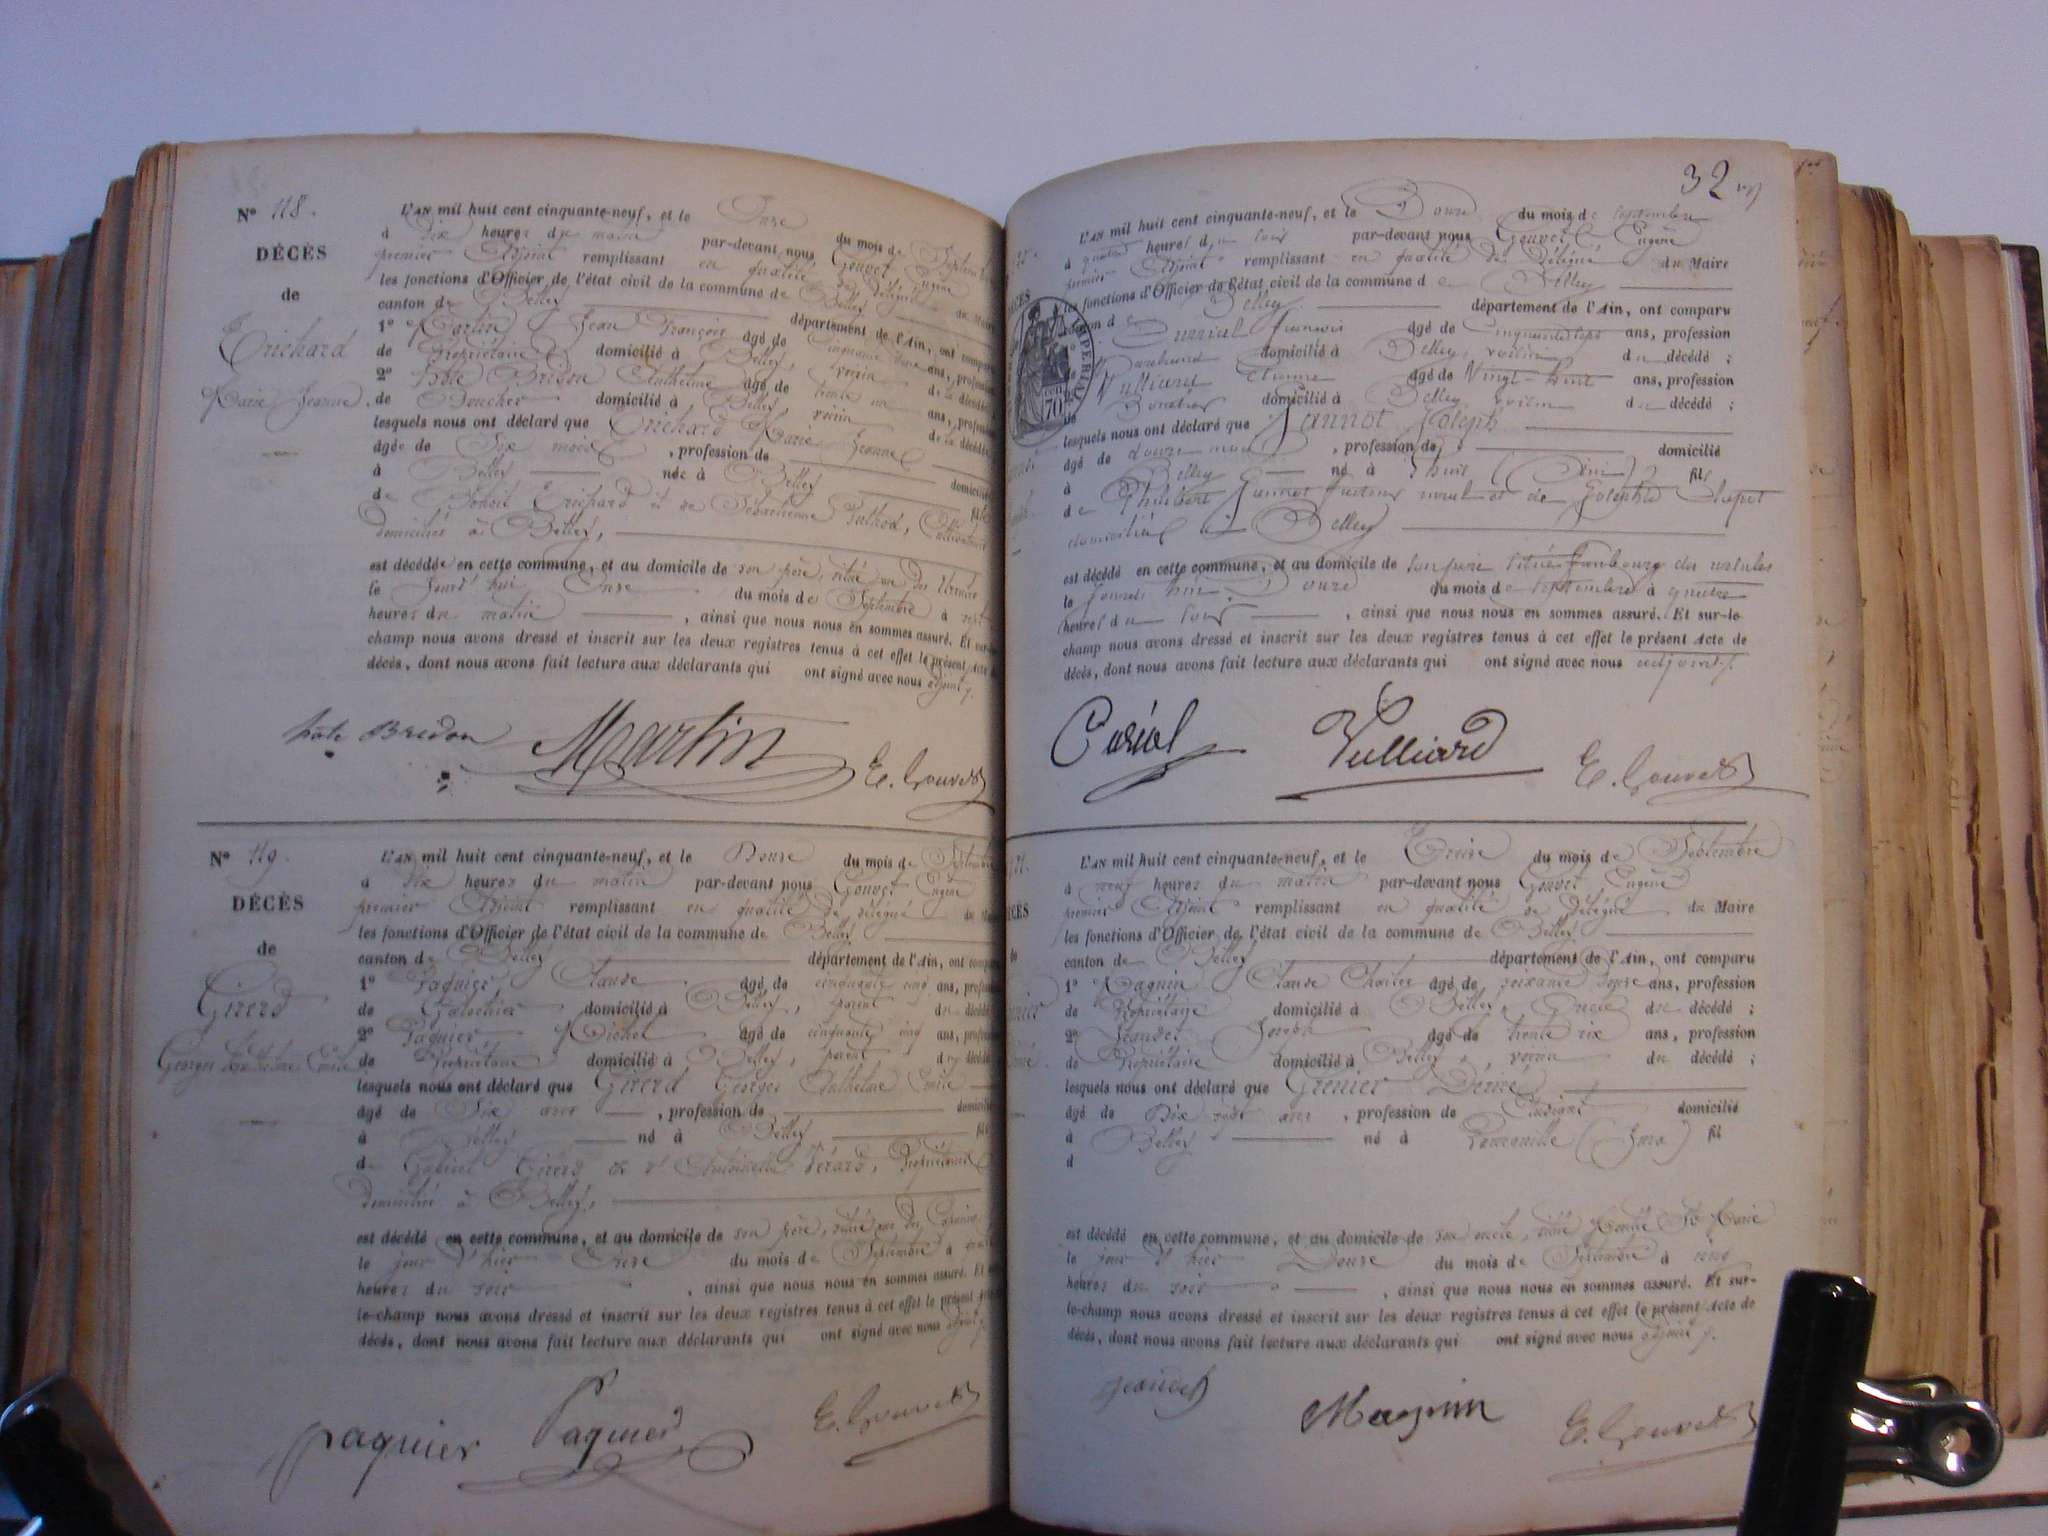 N° 118.
DÉCÈS
de
Trichard
Marie Jeanne.
L'AN mil huit cent cinquante-neuf, et le Onze du mois de Septembre
à dix heures du matin par-devant nous Gouvet Eugène
premier Adjoint remplissant en qualité de délégué du Maire
les fonctions d'Officier de l'état civil de la commune de Belley
canton de Belley département de l'Ain, ont comparu
1° Martin Jean François âgé de cinquante ans, profession
de Propriétaire domicilié à Belley, voisin de la décédée
2° hôte Bridon Anthelme âgé de trente un ans, profession
de Boucher domicilié à Belley voisin de la décédée
lesquels nous ont déclaré que Trichard Marie Jeanne
âgée de Six mois, profession de domiciliée
à Belley née à Belley fille
de Benoit Trichard et de Sébastienne Puthod, Cultivateurs
domiciliés à Belley,
est décédée en cette commune, et au domicile de son père, situé rue des
le Jourd'hui Onze du mois de Septembre à sept
heures du matin, ainsi que nous nous en sommes assuré. Et sur-le-
champ nous avons dressé et inscrit sur les deux registres tenus à cet effet le présent Acte de
décès, dont nous avons fait lecture aux déclarants qui ont signé avec nous adjoint.
hote Bridon Martin E. Gouvet
N° 119.
DÉCÈS
de
Girerd
Georges Anthelme Emile
L'AN mil huit cent cinquante-neuf, et le Douze du mois de Septembre
à dix heures du matin par-devant nous Gouvet Eugène
premier Adjoint remplissant en qualité de délégué du Maire
les fonctions d'Officier de l'état civil de la commune de Belley
canton de Belley département de l'Ain, ont comparu
1° Paquier Claude âgé de cinquante cinq ans, profession
de Galochier domicilié à Belley, parent du décédé
2° Paquier Michel âgé de cinquante cinq ans, profession
de Propriétaire domicilié à Belley, parent du décédé
lesquels nous ont déclaré que Girerd Georges Anthelme Emile
âgé de Six ans, profession de domicilié
à Belley né à Belley fils
de Gabriel Girerd et d'Antoinette Gérard, Propriétaires
domiciliés à Belley,
est décédé en cette commune, et au domicile de son père, situé rue des
le jour d'hier Onze du mois de Septembre à
heures du soir, ainsi que nous nous en sommes assuré. Et sur-
le-champ nous avons dressé et inscrit sur les deux registres tenus à cet effet le présent Acte de
décès, dont nous avons fait lecture aux déclarants qui ont signé avec nous adjoint.
paquier Paquier E. Gouvet
32
L'AN mil huit cent cinquante-neuf, et le Douze du mois de Septembre
à quatre heures du soir par-devant nous Gouvet Eugène
premier Adjoint remplissant en qualité de délégué du Maire
les fonctions d'Officier de l'état civil de la commune de Belley
canton de Belley département de l'Ain, ont comparu
Curial François âgé de cinquante sept ans, profession
domicilié à Belley, voisin du décédé ;
Vulliard Etienne âgé de Vingt-huit ans, profession
domicilié à Belley voisin du décédé ;
lesquels nous ont déclaré que Jannot Joseph
âgé de douze mois, profession de domicilié
à Belley né à (Ain) fils
de Philibert Jannot facteur rural et de Josephte
domiciliés à Belley
est décédé en cette commune, et au domicile de son père situé faubourg des ursules
le Jourd'hui Douze du mois de septembre à quatre
heures du soir, ainsi que nous nous en sommes assuré. Et sur-le-
champ nous avons dressé et inscrit sur les deux registres tenus à cet effet le présent Acte de
décès, dont nous avons fait lecture aux déclarants qui ont signé avec nous adjoint.
IMPERIAL
70
Curial Vulliard E. Gouvet
L'AN mil huit cent cinquante-neuf, et le Treize du mois de Septembre
à neuf heures du matin par-devant nous Gouvet Eugène
premier Adjoint remplissant en qualité de délégué du Maire
les fonctions d'Officier de l'état civil de la commune de Belley
canton de Belley département de l'Ain, ont comparu
1° Magnin Claude Charles âgé de soixante douze ans, profession
de Propriétaire domicilié à Belley, Oncle du décédé ;
2° Joseph âgé de trente six ans, profession
de Propriétaire domicilié à Belley, voisin du décédé ;
lesquels nous ont déclaré que Grenier Désiré
âgé de Dix sept ans, profession de Etudiant domicilié
à Belley né à (Jura) fil
d
est décédé en cette commune, et au domicile de son oncle, situé Ste Marie
le jour d'hier Douze du mois de Septembre à cinq
heures du soir, ainsi que nous nous en sommes assuré. Et sur-
le-champ nous avons dressé et inscrit sur les deux registres tenus à cet effet le présent Acte de
décès, dont nous avons fait lecture aux déclarants qui ont signé avec nous adjoint.
Magnin E. Gouvet